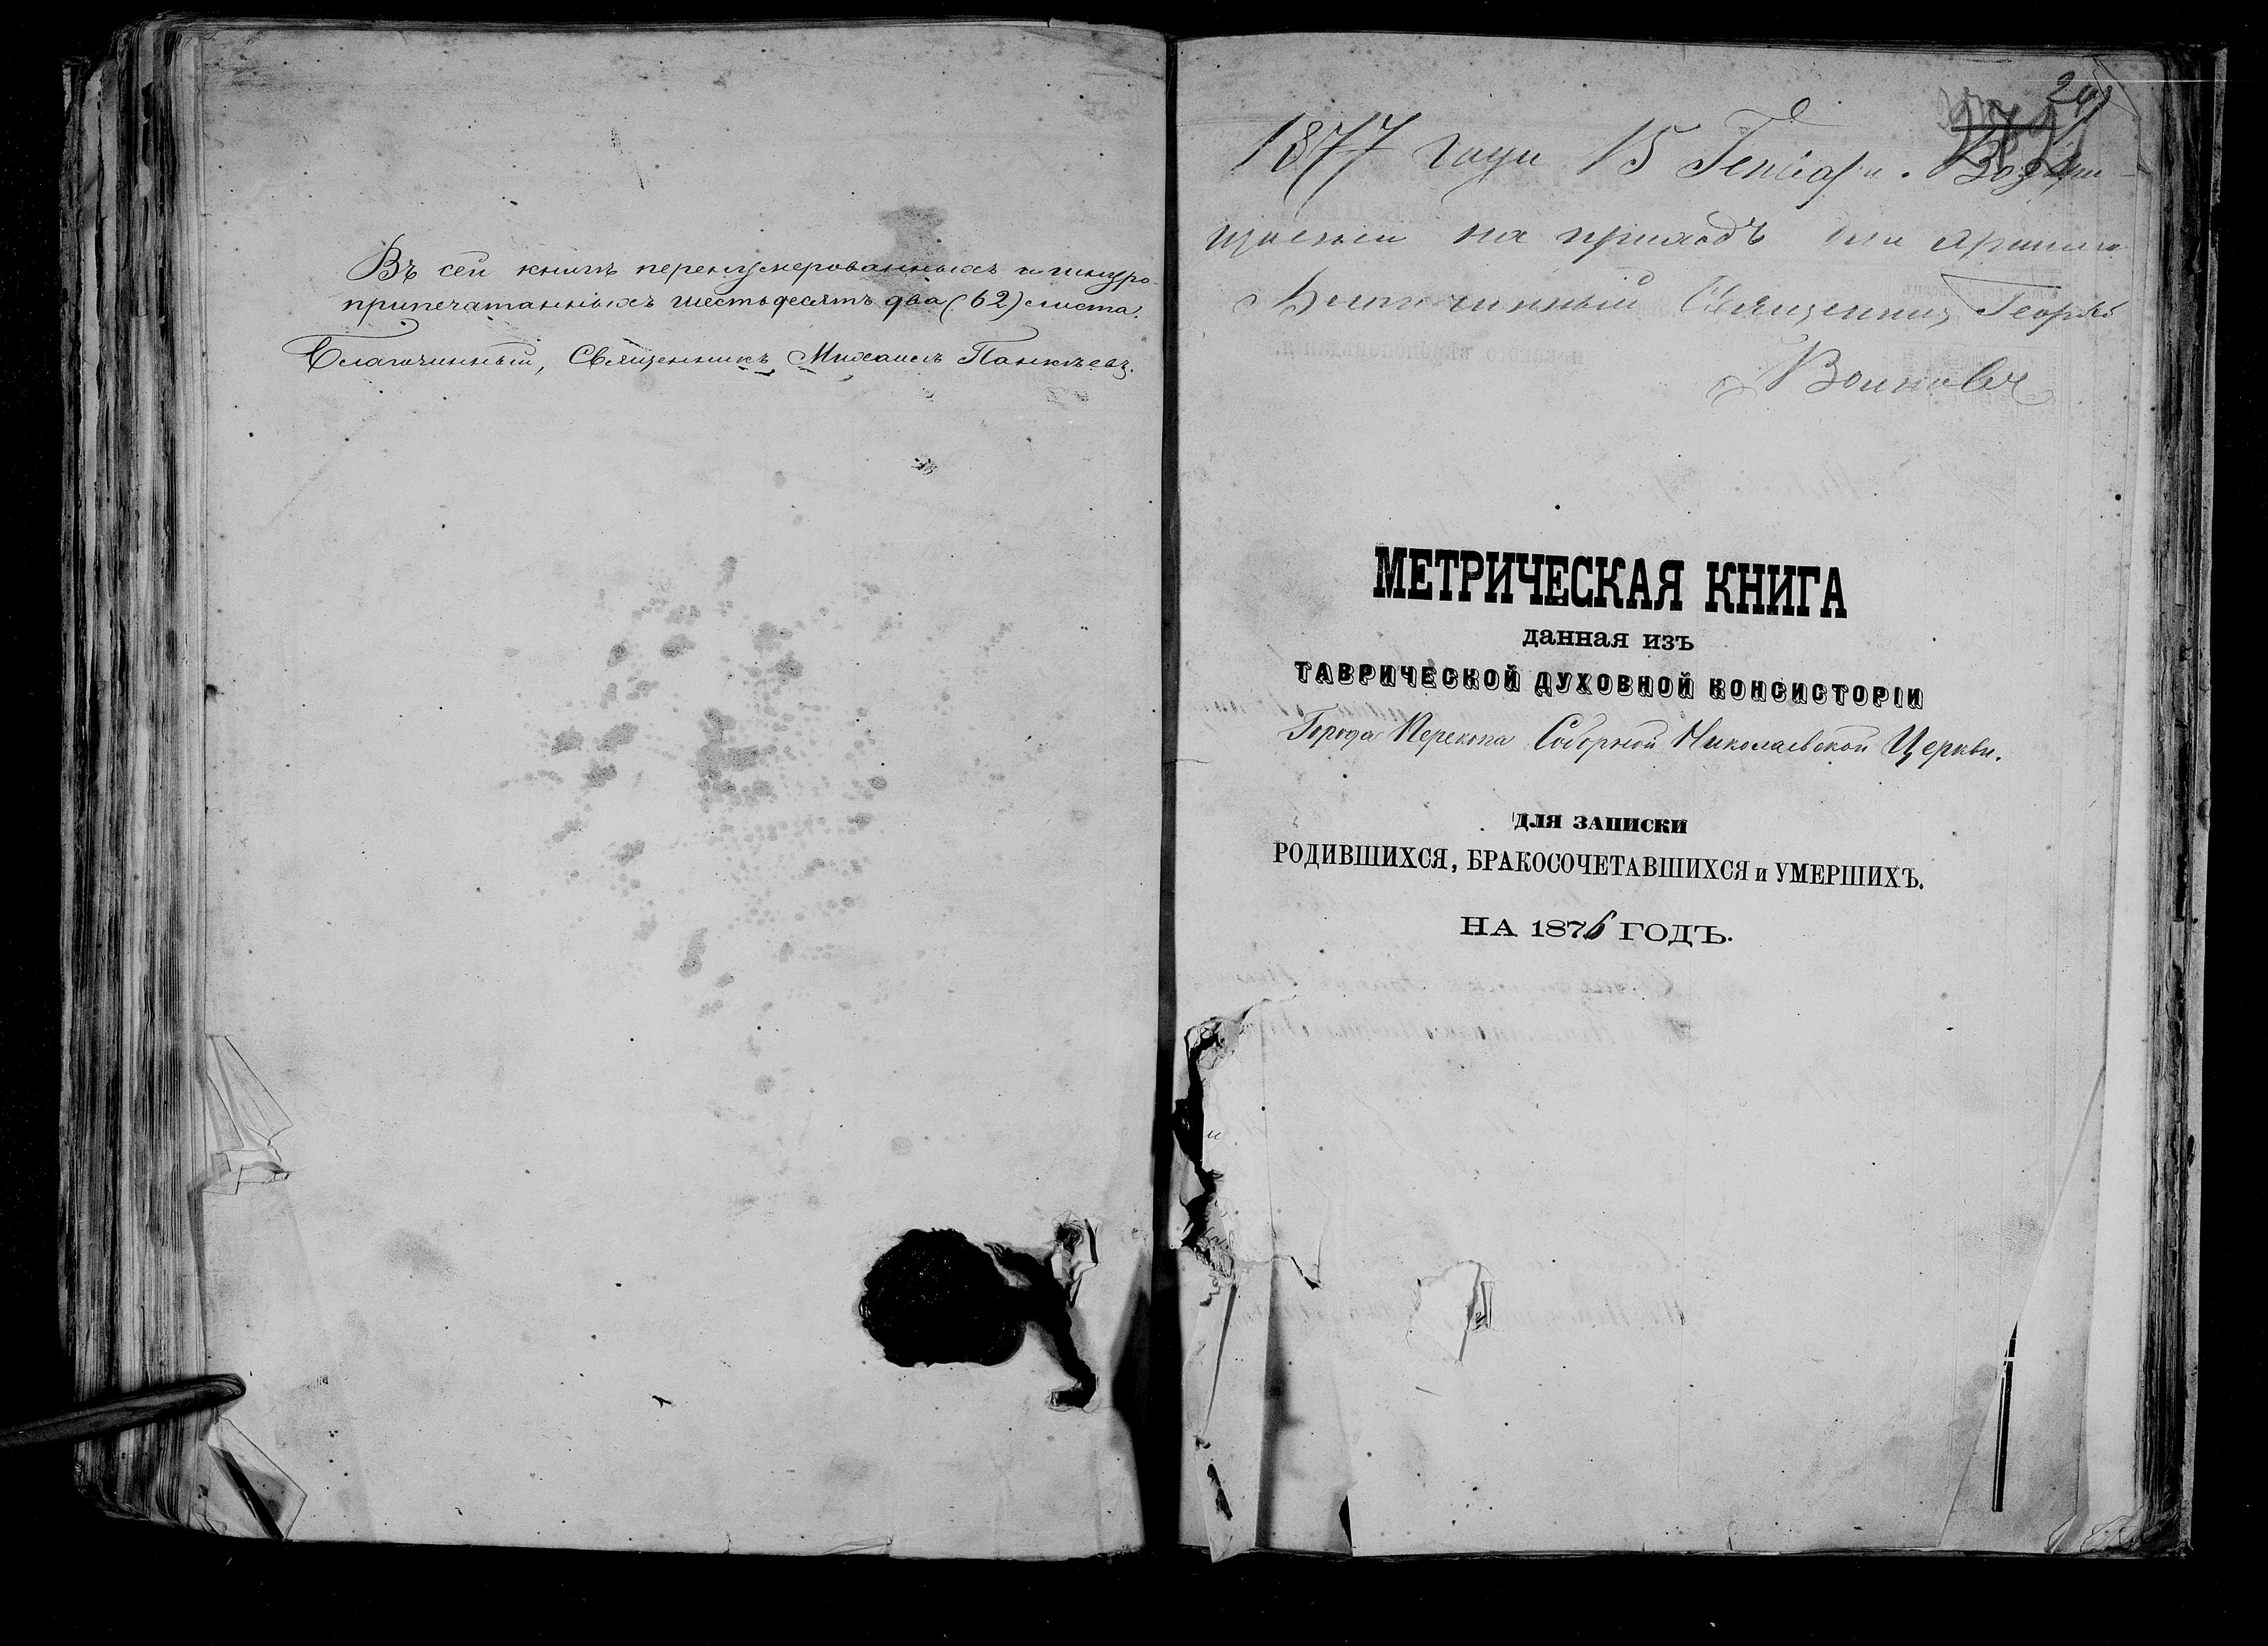 Въ сей книгѣ перенумерованныхъ и шнуро-
припечатанныхъ шестьдесятъ два (62) листа.
Благочинный, Священникъ Михаилъ Панкѣевъ.
1877 года 15 Генваря. Возвра-
щается на приходъ для архива
Благочинный Священникъ Георгій
МЕТРИЧЕСКАЯ КНИГА
данная изъ
ТАВРИЧЕСКОЙ ДУХОВНОЙ КОНСИСТОРІИ
Города Перекопа Соборной Николаевской Церкви.
ДЛЯ ЗАПИСКИ
РОДИВШИХСЯ, БРАКОСОЧЕТАВШИХСЯ и УМЕРШИХЪ.
НА 1876 ГОДЪ.